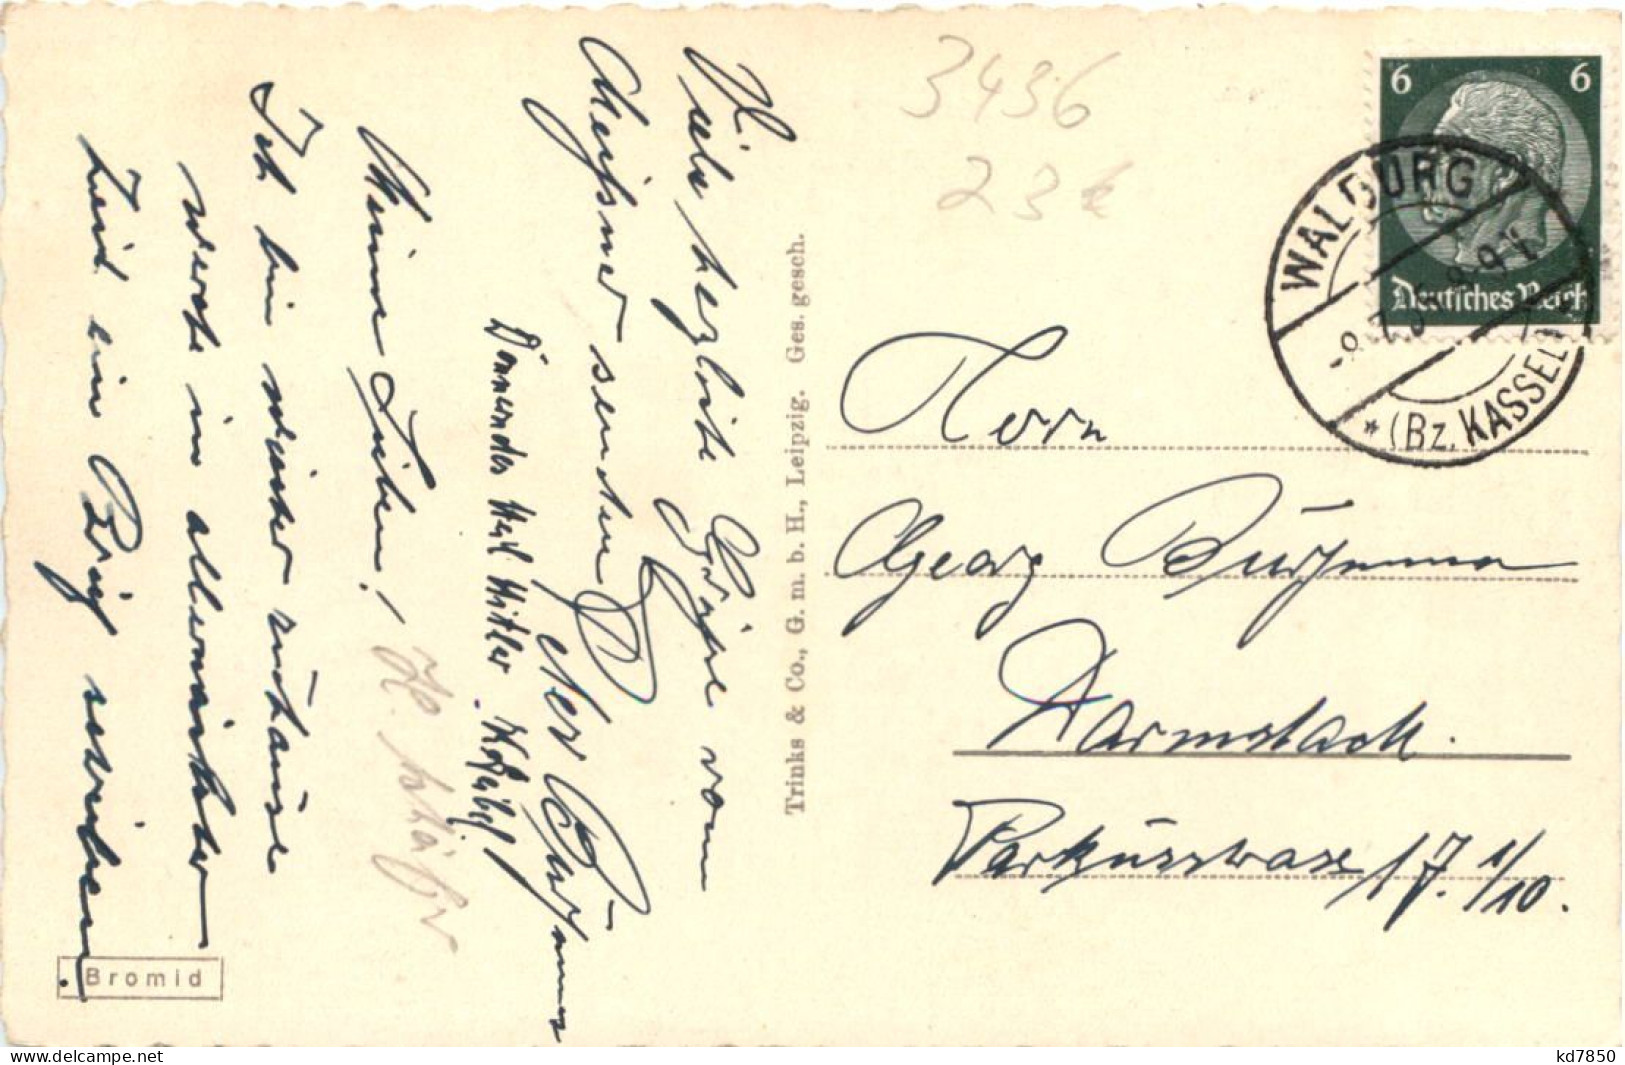 Meine Lieben!
Ich bin wieder zuhause
werde in allernächster
Zeit ein Brief schreiben.
Viele herzliche Grüße vom
Meißner senden
Donnerndes Heil Hitler
Herrn
Georg
Darmstadt.
17. 1/10.
Trinks & Co., G. m. b. H., Leipzig. Ges. gesch.
Bromid
3436
23 €
6 6
Deutsches Reich
WALBURG
(Bz. KASSEL)
kd7850
www.delcampe.net